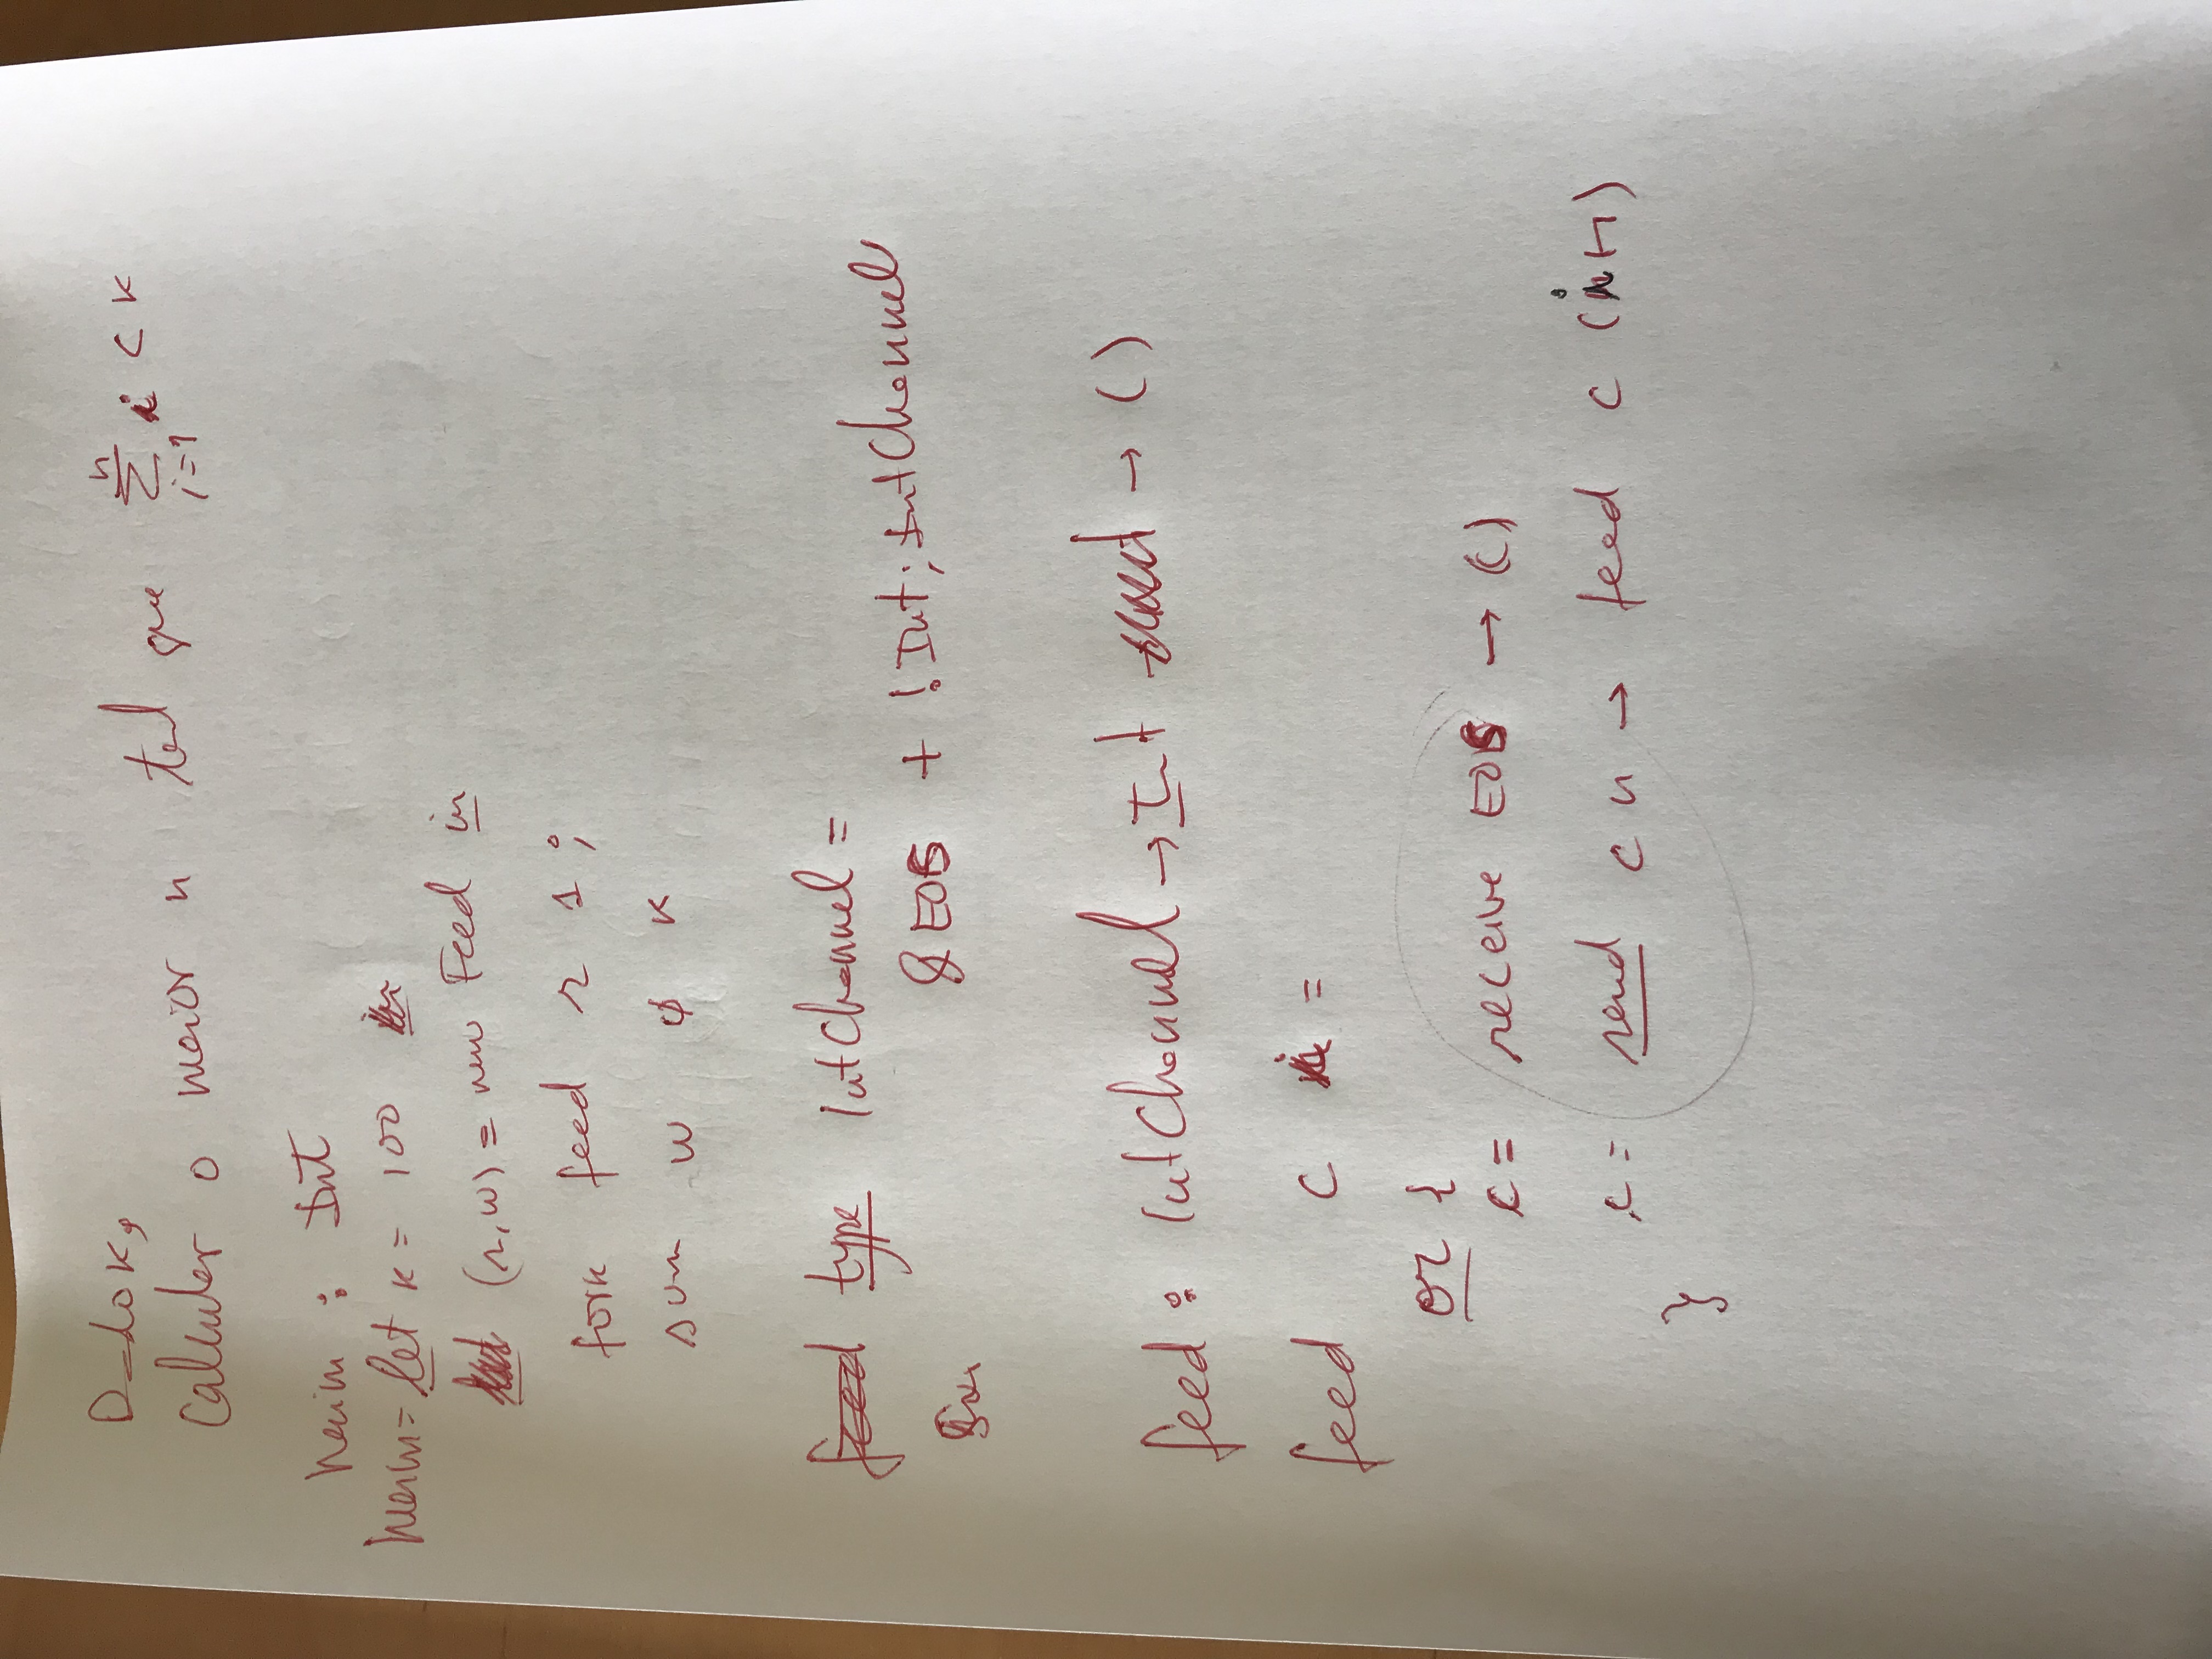 Dado k,
Calcular o maior n tal que n Σ i=1 i < k
main : Int
main = let k = 100
(r,w) = new Feed in
fork feed r 1 ;
sum w ϕ k
feed type IntChannel =
&EOS + !Int; IntChannel
feed : IntChannel → Int → ()
feed c i =
or {
c = receive EOS → ()
c = send c n → feed c (i+1)
}